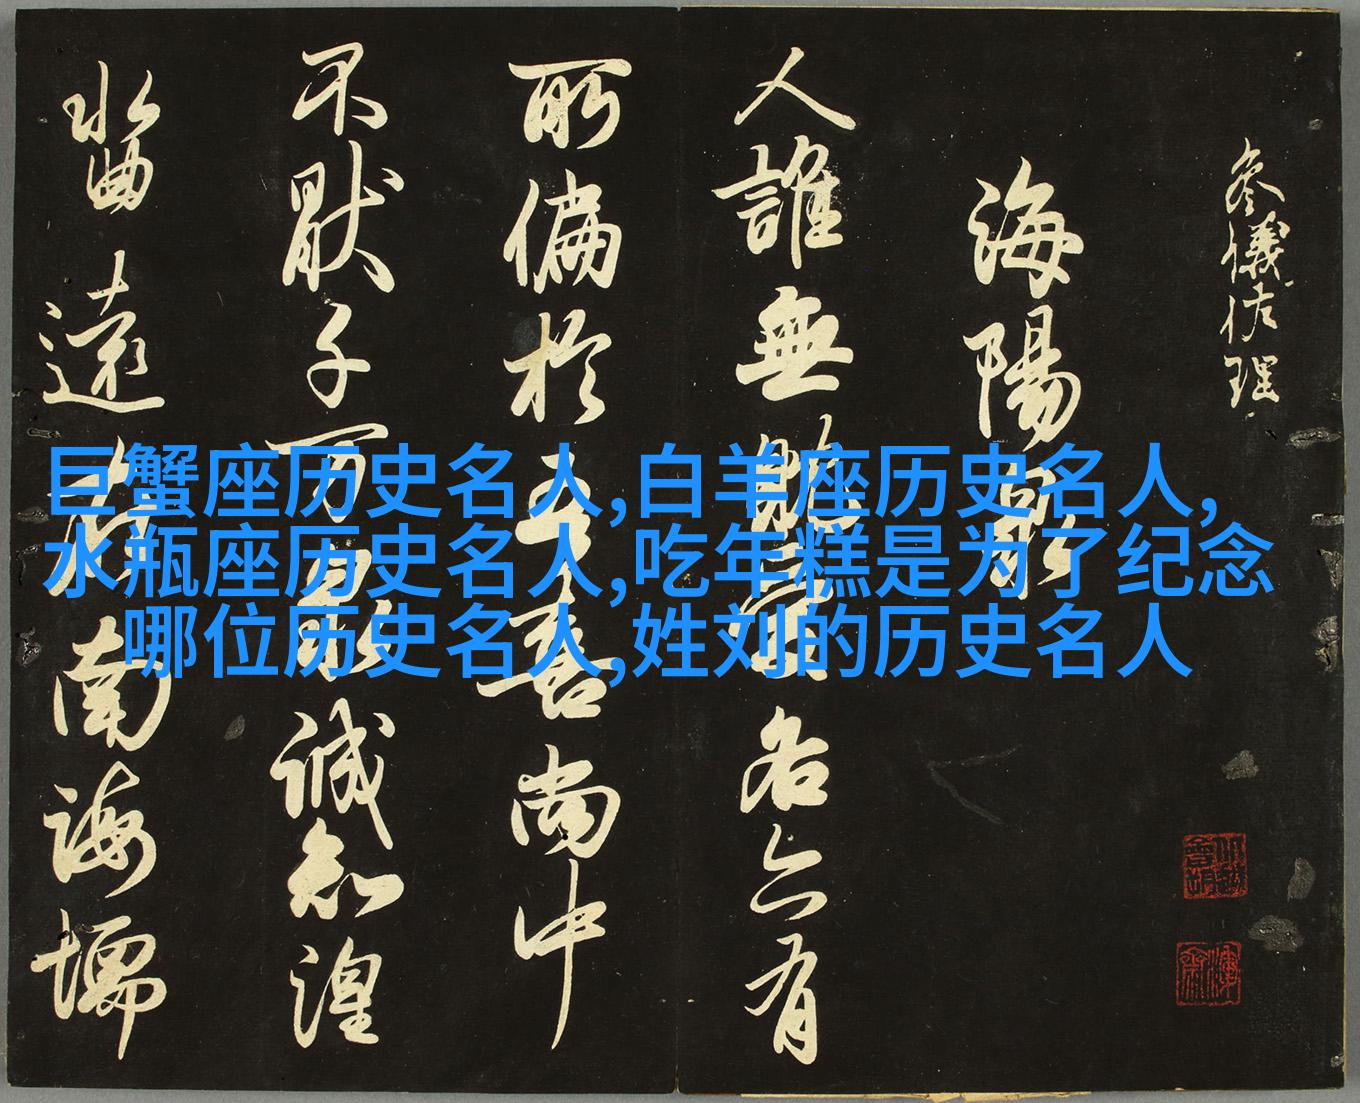 巨蟹座历史名人,白羊座历史名人,
水瓶座历史名人,吃年糕是为了纪念
哪位历史名人,姓刘的历史名人
儀佐理
海陽
人誰無 各亦有
所偏於吾喜尚中
不猒子 誠知湟
遠在南海壖